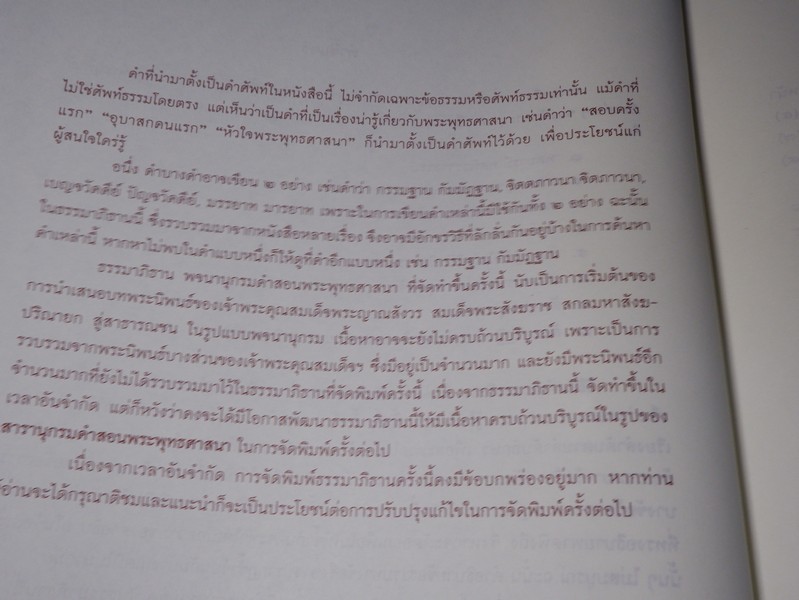 คำที่นำมาตั้งเป็นคำศัพท์ในหนังสือนี้ ไม่จำกัดเฉพาะข้อธรรมหรือศัพท์ธรรมเท่านั้น แม้คำที่
ไม่ใช่ศัพท์ธรรมโดยตรง แต่เห็นว่าเป็นคำที่เป็นเรื่องน่ารู้เกี่ยวกับพระพุทธศาสนา เช่นคำว่า “สอบครั้ง
แรก” “อุบาสกคนแรก” “หัวใจพระพุทธศาสนา” ก็นำมาตั้งเป็นคำศัพท์ไว้ด้วย เพื่อประโยชน์แก่
ผู้สนใจใคร่รู้
อนึ่ง คำบางคำอาจเขียน ๒ อย่าง เช่นคำว่า กรรมฐาน กัมมัฏฐาน, จิตตภาวนา จิตภาวนา,
เบญจวัคคีย์ ปัญจวัคคีย์, มรรยาท มารยาท เพราะในการเขียนคำเหล่านี้มีใช้กันทั้ง ๒ อย่าง ฉะนั้น
ในธรรมาภิธานนี้ ซึ่งรวบรวมมาจากหนังสือหลายเรื่อง จึงอาจมีอักขรวิธีที่ลักลั่นกันอยู่บ้างในการค้นหา
คำเหล่านี้ หากหาไม่พบในคำแบบหนึ่งก็ให้ดูที่คำอีกแบบหนึ่ง เช่น กรรมฐาน กัมมัฏฐาน
ธรรมาภิธาน พจนานุกรมคำสอนพระพุทธศาสนา ที่จัดทำขึ้นครั้งนี้ นับเป็นการเริ่มต้นของ
การนำเสนอบทพระนิพนธ์ของเจ้าพระคุณสมเด็จพระญาณสังวร สมเด็จพระสังฆราช สกลมหาสังฆ-
ปริณายก สู่สาธารณชน ในรูปแบบพจนานุกรม เนื้อหาอาจจะยังไม่ครบถ้วนบริบูรณ์ เพราะเป็นการ
รวบรวมจากพระนิพนธ์บางส่วนของเจ้าพระคุณสมเด็จฯ ซึ่งมีอยู่เป็นจำนวนมาก และยังมีพระนิพนธ์อีก
จำนวนมากที่ยังไม่ได้รวบรวมมาไว้ในธรรมาภิธานที่จัดพิมพ์ครั้งนี้ เนื่องจากธรรมาภิธานนี้ จัดทำขึ้นใน
เวลาอันจำกัด แต่ก็หวังว่าคงจะได้มีโอกาสพัฒนาธรรมาภิธานนี้ให้มีเนื้อหาครบถ้วนบริบูรณ์ในรูปของ
สารานุกรมคำสอนพระพุทธศาสนา ในการจัดพิมพ์ครั้งต่อไป
เนื่องจากเวลาอันจำกัด การจัดพิมพ์ธรรมาภิธานครั้งนี้คงมีข้อบกพร่องอยู่มาก หากท่าน
ผู้อ่านจะได้กรุณาติชมและแนะนำก็จะเป็นประโยชน์ต่อการปรับปรุงแก้ไขในการจัดพิมพ์ครั้งต่อไป